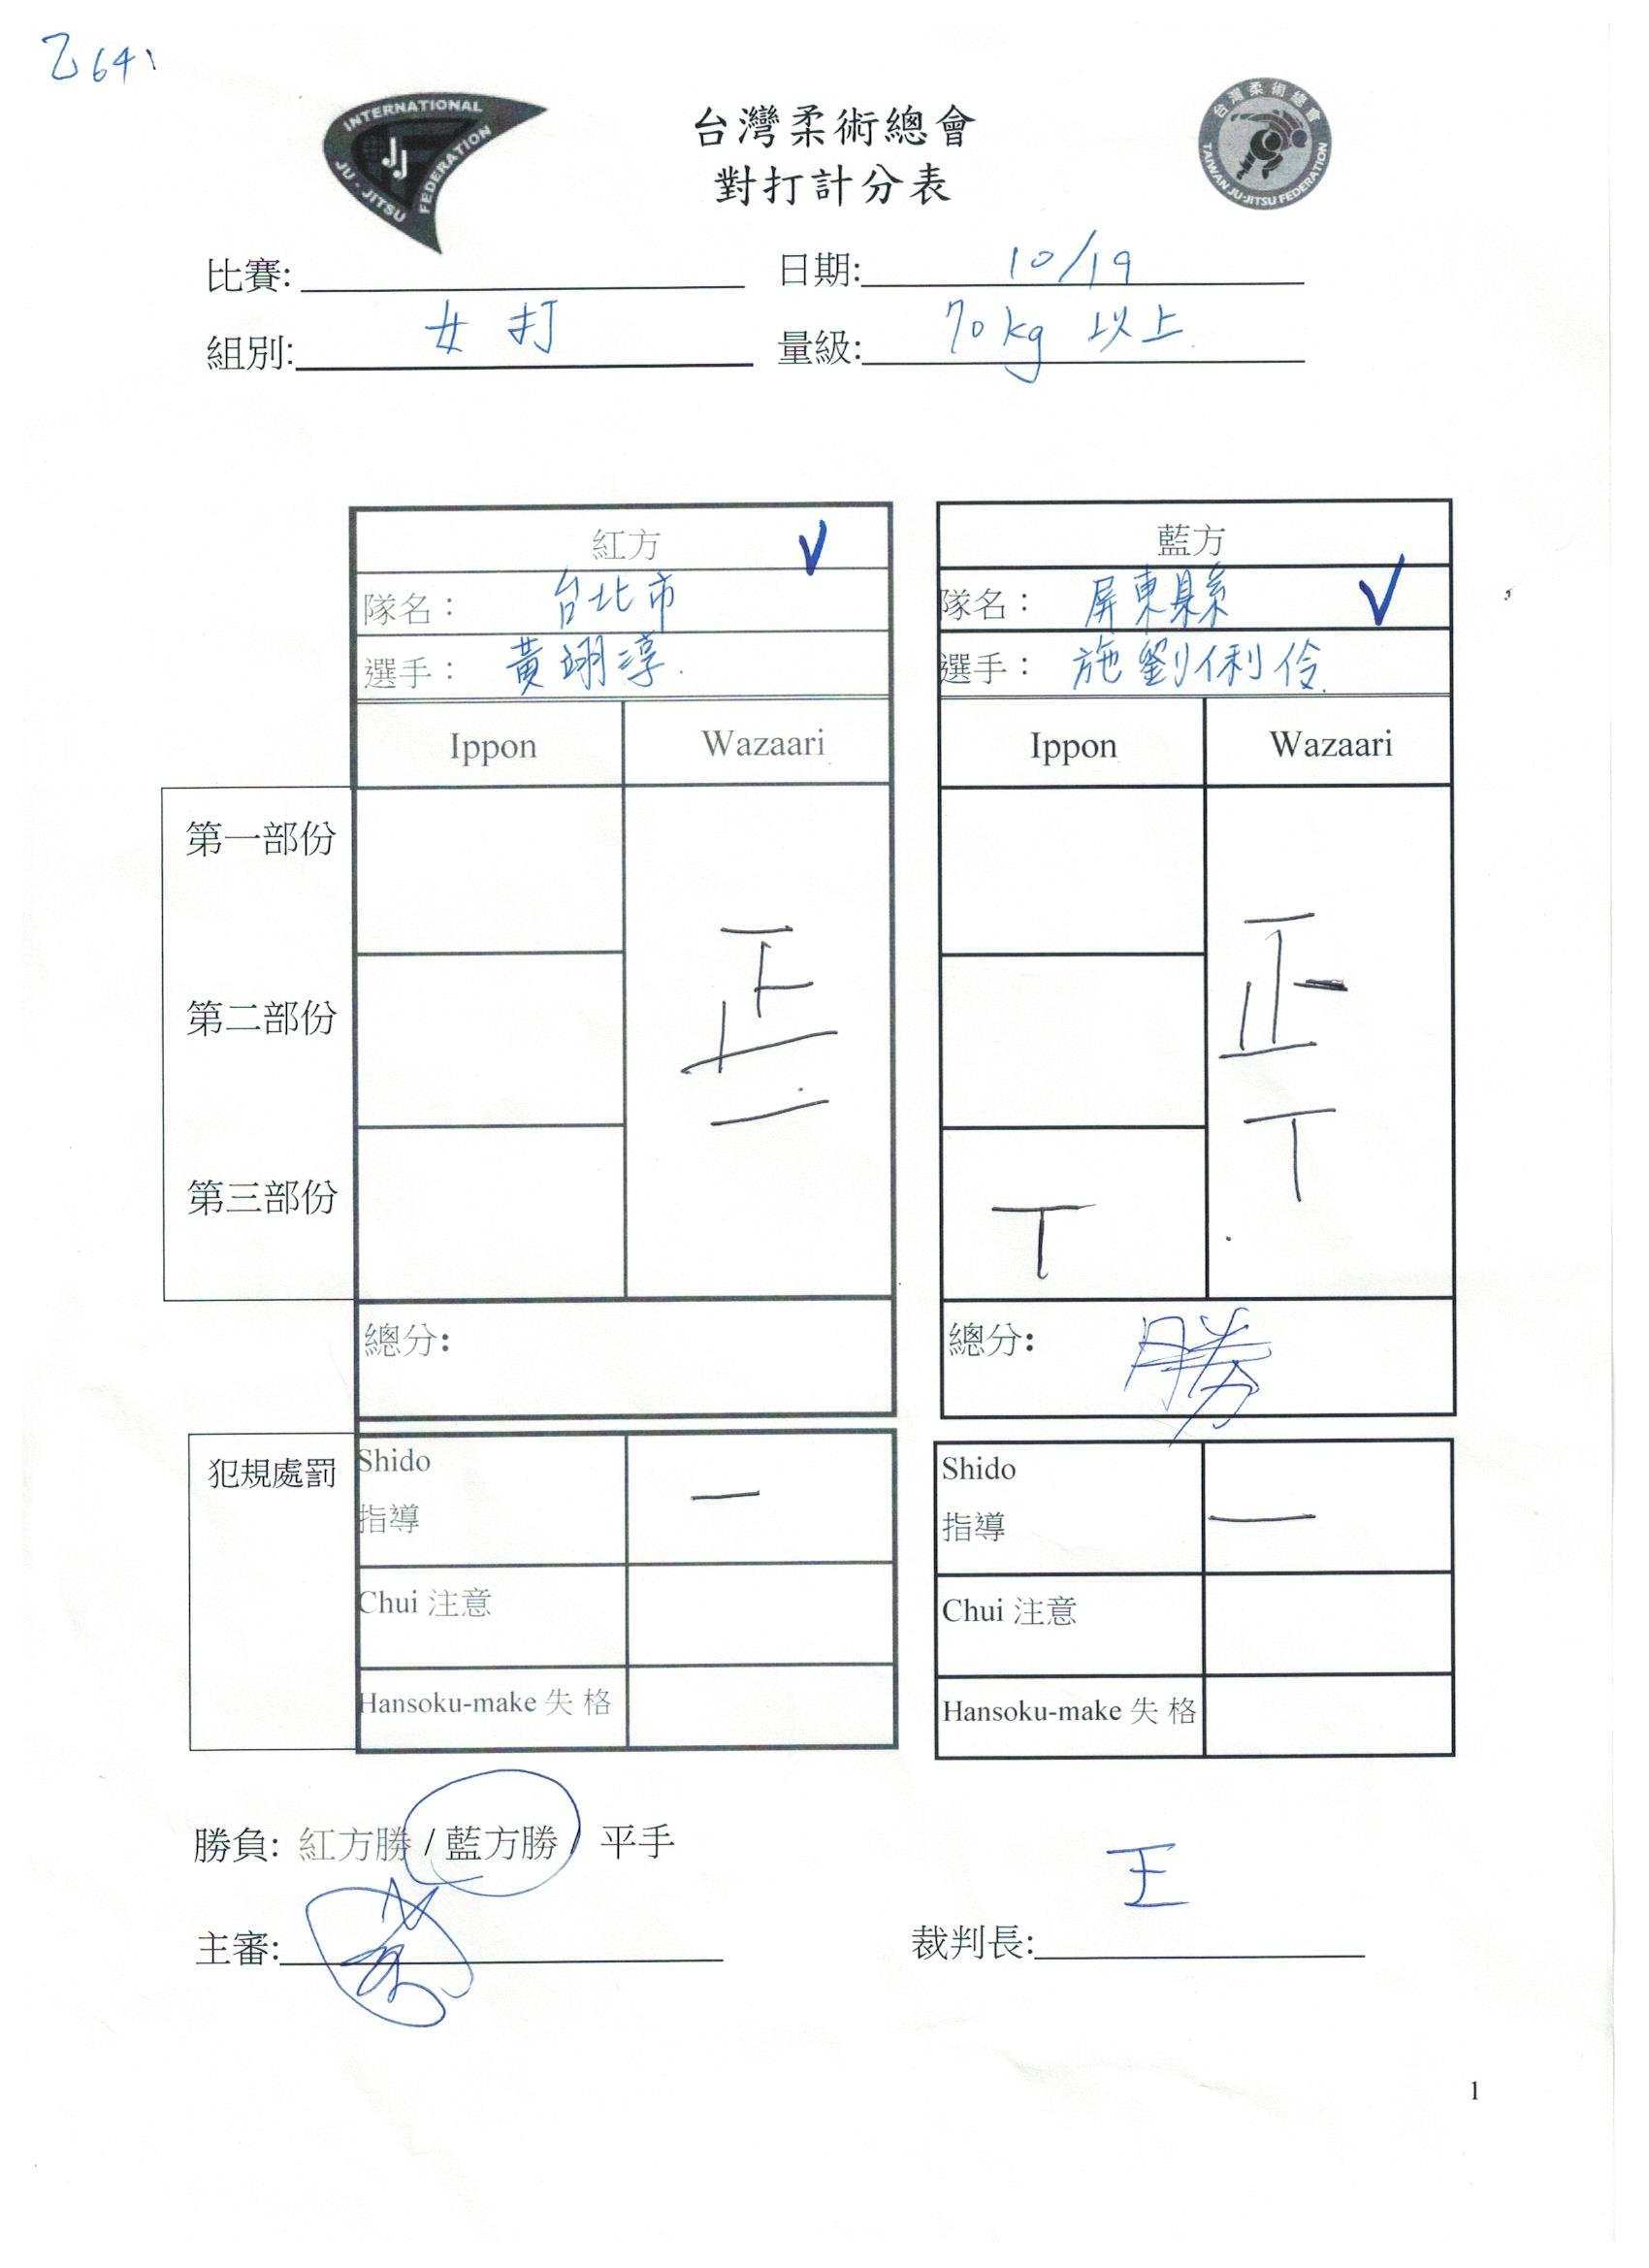 乙641
INTERNATIONAL JU-JITSU FEDERATION
JJ
台灣柔術總會
對打計分表
台灣柔術總會
TAIWAN JU-JITSU FEDERATION
比賽: 日期: 10/19
組別: 女打 量級: 70kg 以上
紅方 藍方
隊名： 台北市 隊名： 屏東縣
選手： 黃翊淳 選手： 施劉俐伶
Ippon Wazaari Ippon Wazaari
第一部份
正 正
第二部份
一 丅
第三部份 丅
總分: 總分: 勝
犯規處罰 Shido 一 Shido 一
指導 指導
Chui 注意 Chui 注意
Hansoku-make 失 格 Hansoku-make 失 格
勝負: 紅方勝 / 藍方勝 / 平手
主審: 裁判長: 王
1